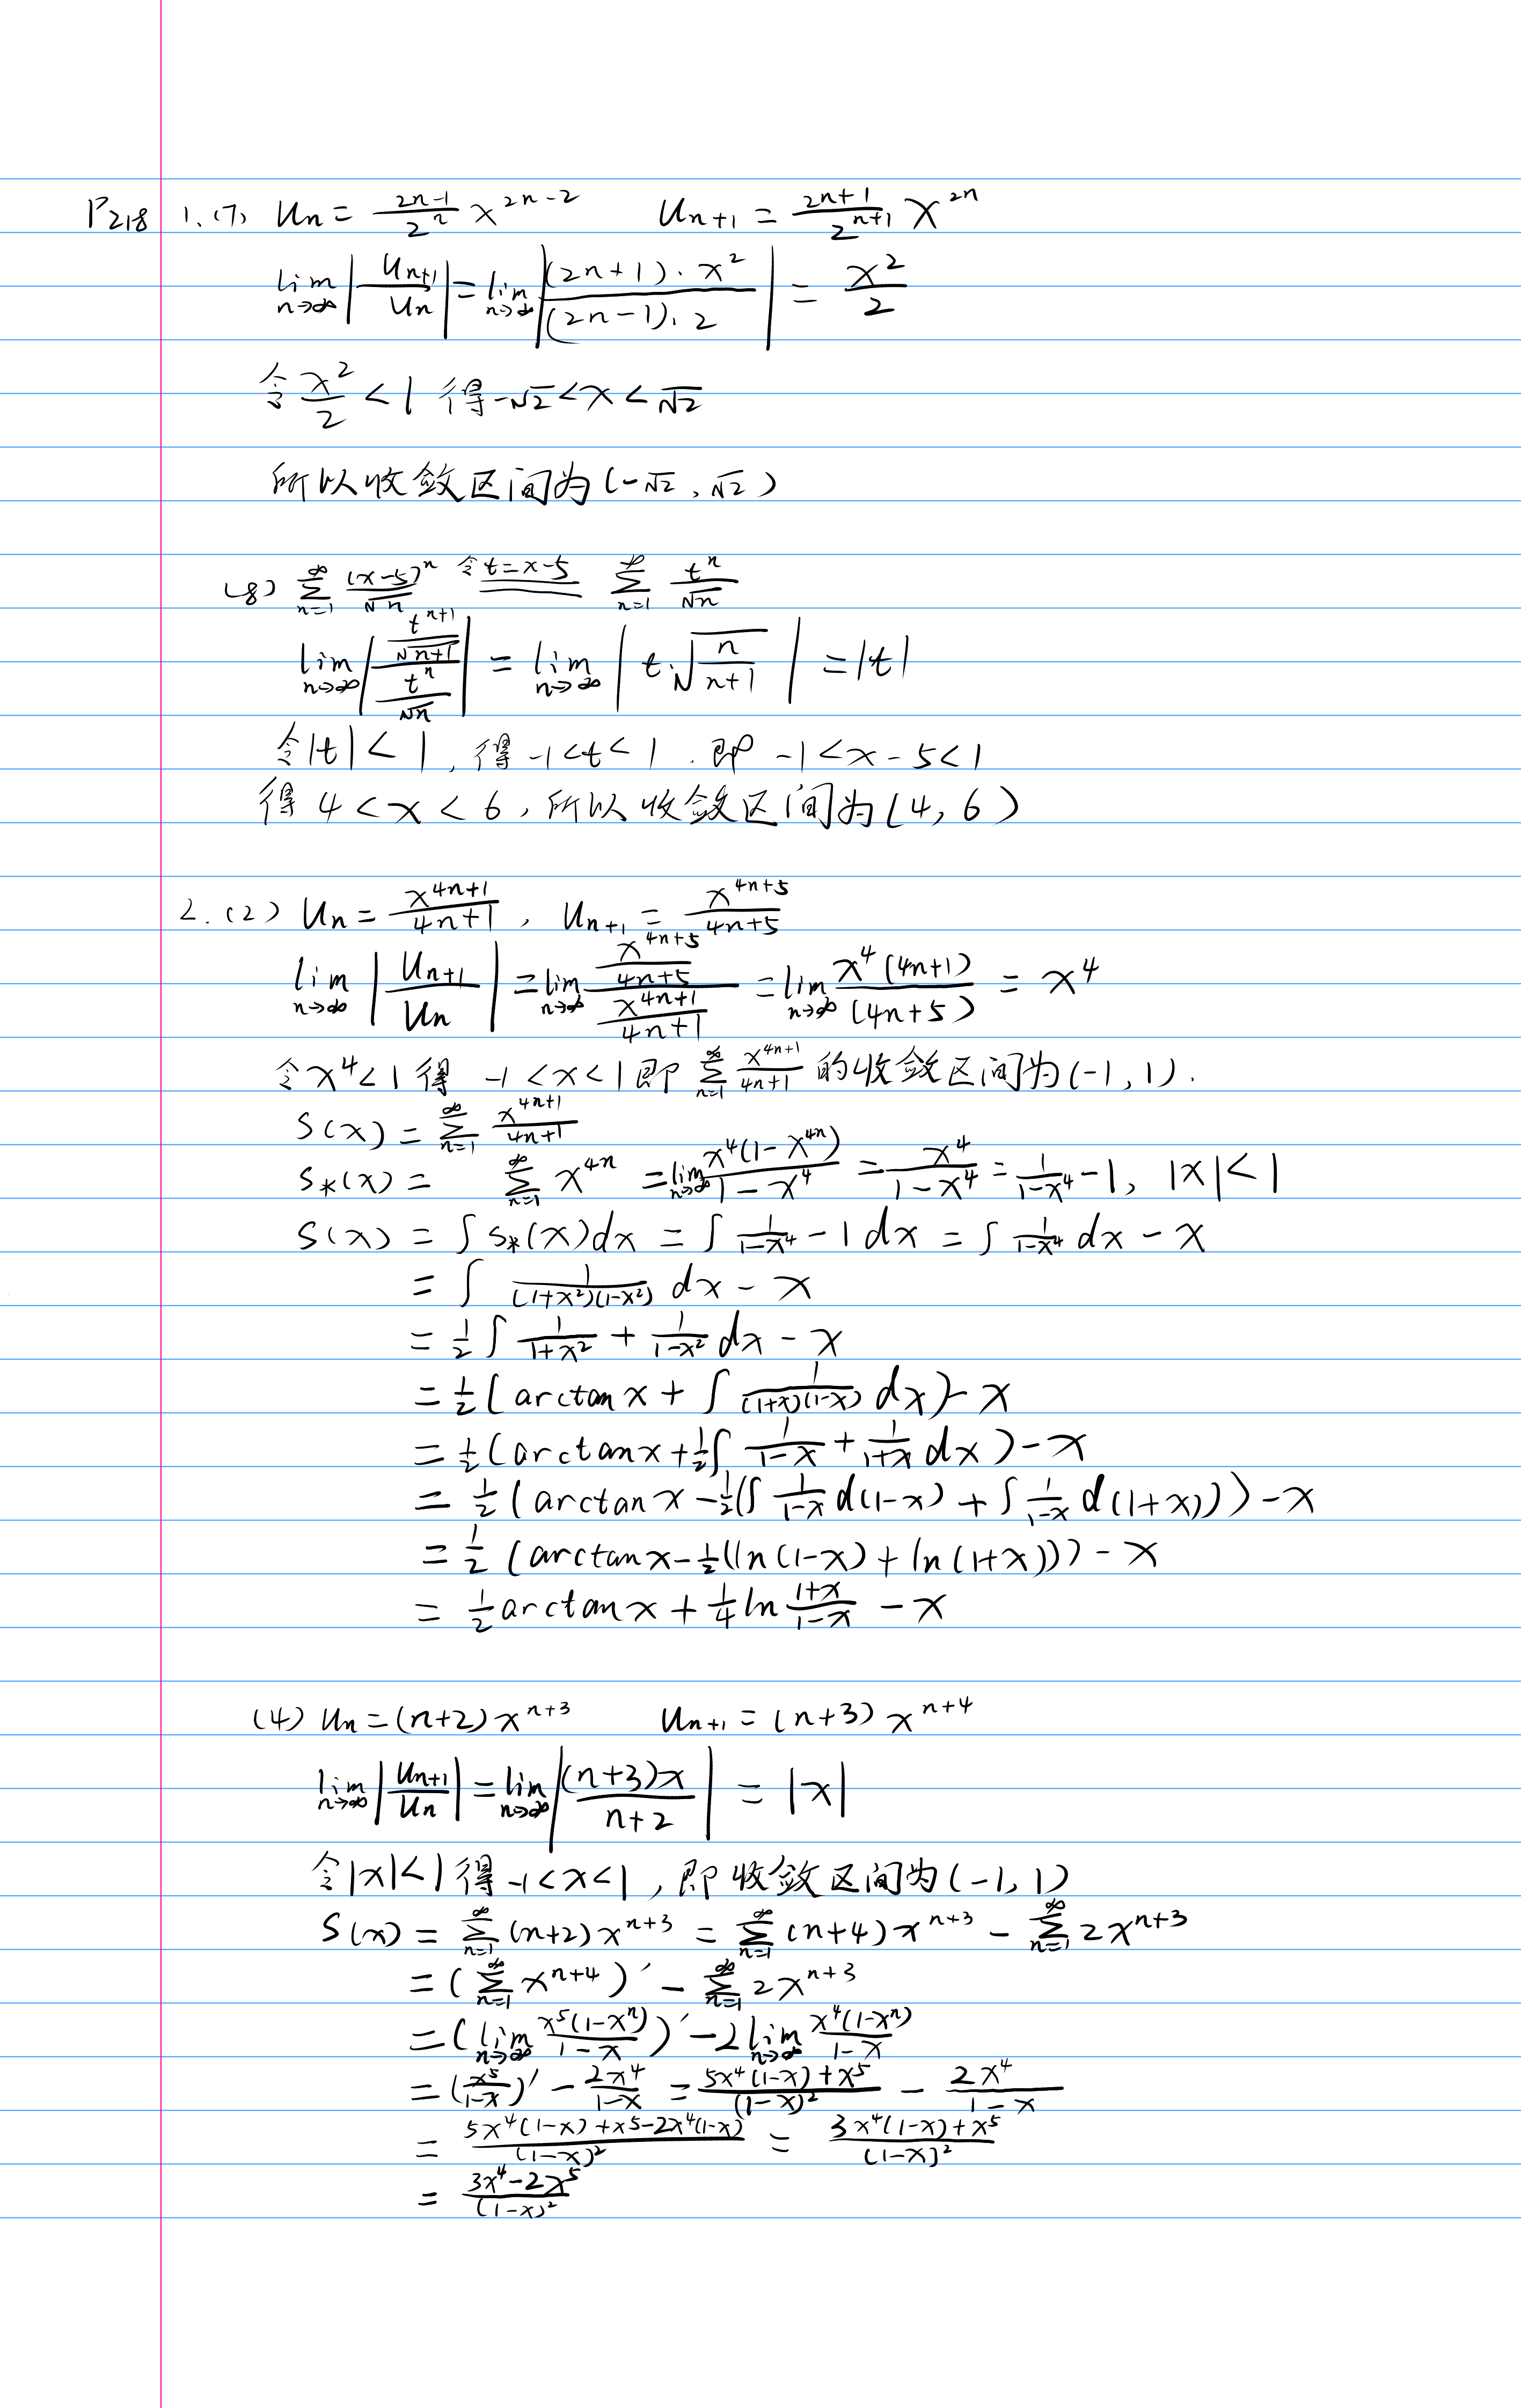 P218 1.(7) Un = \frac{2n-1}{2^n} x^{2n-2} U_{n+1} = \frac{2n+1}{2^{n+1}} x^{2n}
\lim_{n→∞} |\frac{U_{n+1}}{Un}| = \lim_{n→∞} |\frac{(2n+1)·x^2}{(2n-1)·2}| = \frac{x^2}{2}
令 \frac{x^2}{2} < 1 得 -√2 < x < √2
所以收敛区间为(-√2, √2)
(8) \sum_{n=1}^{∞} \frac{(x-5)^n}{\sqrt{n}} \overset{令t=x-5}{=} \sum_{n=1}^{∞} \frac{t^n}{\sqrt{n}}
\lim_{n→∞} |\frac{\frac{t^{n+1}}{\sqrt{n+1}}}{\frac{t^n}{\sqrt{n}}}| = \lim_{n→∞} |t·\sqrt{\frac{n}{n+1}}| = |t|
令|t| < 1, 得 -1 < t < 1. 即 -1 < x - 5 < 1
得 4 < x < 6, 所以收敛区间为(4, 6)
2.(2) Un = \frac{x^{4n+1}}{4n+1}, U_{n+1} = \frac{x^{4n+5}}{4n+5}
\lim_{n→∞} |\frac{U_{n+1}}{Un}| = \lim_{n→∞} \frac{\frac{x^{4n+5}}{4n+5}}{\frac{x^{4n+1}}{4n+1}} = \lim_{n→∞} \frac{x^4(4n+1)}{(4n+5)} = x^4
令 x^4 < 1 得 -1 < x < 1 即 \sum_{n=1}^{∞} \frac{x^{4n+1}}{4n+1} 的收敛区间为(-1, 1).
S(x) = \sum_{n=1}^{∞} \frac{x^{4n+1}}{4n+1}
S*(x) = \sum_{n=1}^{∞} x^{4n} = \lim_{n→∞} \frac{x^4(1-x^{4n})}{1-x^4} = \frac{x^4}{1-x^4} = \frac{1}{1-x^4} - 1, |x| < 1
S(x) = ∫ S*(x)dx = ∫ \frac{1}{1-x^4} - 1 dx = ∫ \frac{1}{1-x^4} dx - x
= ∫ \frac{1}{(1+x^2)(1-x^2)} dx - x
= \frac{1}{2} ∫ \frac{1}{1+x^2} + \frac{1}{1-x^2} dx - x
= \frac{1}{2} (arctan x + ∫ \frac{1}{(1+x)(1-x)} dx) - x
= \frac{1}{2} (arctan x + \frac{1}{2} ∫ \frac{1}{1-x} + \frac{1}{1+x} dx) - x
= \frac{1}{2} (arctan x - \frac{1}{2} (∫ \frac{1}{1-x} d(1-x) + ∫ \frac{1}{1-x} d(1+x))) - x
= \frac{1}{2} (arctan x - \frac{1}{2} (ln(1-x) + ln(1+x))) - x
= \frac{1}{2} arctan x + \frac{1}{4} ln \frac{1+x}{1-x} - x
(4) Un = (n+2) x^{n+3} U_{n+1} = (n+3) x^{n+4}
\lim_{n→∞} |\frac{U_{n+1}}{Un}| = \lim_{n→∞} |\frac{(n+3)x}{n+2}| = |x|
令|x| < 1 得 -1 < x < 1, 即收敛区间为(-1, 1)
S(x) = \sum_{n=1}^{∞} (n+2) x^{n+3} = \sum_{n=1}^{∞} (n+4) x^{n+3} - \sum_{n=1}^{∞} 2x^{n+3}
= (\sum_{n=1}^{∞} x^{n+4})' - \sum_{n=1}^{∞} 2x^{n+3}
= (\lim_{n→∞} \frac{x^5(1-x^n)}{1-x})' - 2 \lim_{n→∞} \frac{x^4(1-x^n)}{1-x}
= (\frac{x^5}{1-x})' - \frac{2x^4}{1-x} = \frac{5x^4(1-x)+x^5}{(1-x)^2} - \frac{2x^4}{1-x}
= \frac{5x^4(1-x)+x^5-2x^4(1-x)}{(1-x)^2} = \frac{3x^4(1-x)+x^5}{(1-x)^2}
= \frac{3x^4-2x^5}{(1-x)^2}